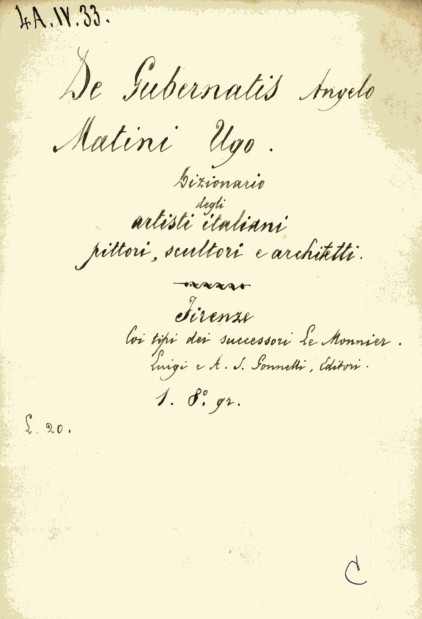 4A.IV.33.
De Gubernatis Angelo
Matini Ugo.
Dizionario
degli
artisti italiani
pittori, scultori e architetti.
Firenze
Coi tipi dei successori Le Monnier.
Luigi e A. S. Gonnelli, Editori.
1. 8.° gr.
L. 20.
C